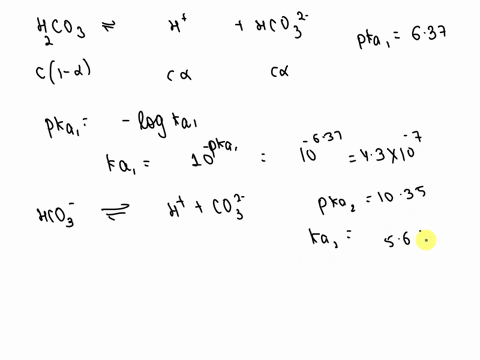 H2CO3 ⇌ H+ + HCO3^2- pka1 = 6.37
C(1-α) cα cα
pka1 = -log ka1
ka1 = 10^-pka1 = 10^-6.37 = 4.3×10^-7
HCO3^- ⇌ H+ + CO3^2- pka2 = 10.35
ka2 = 5.6